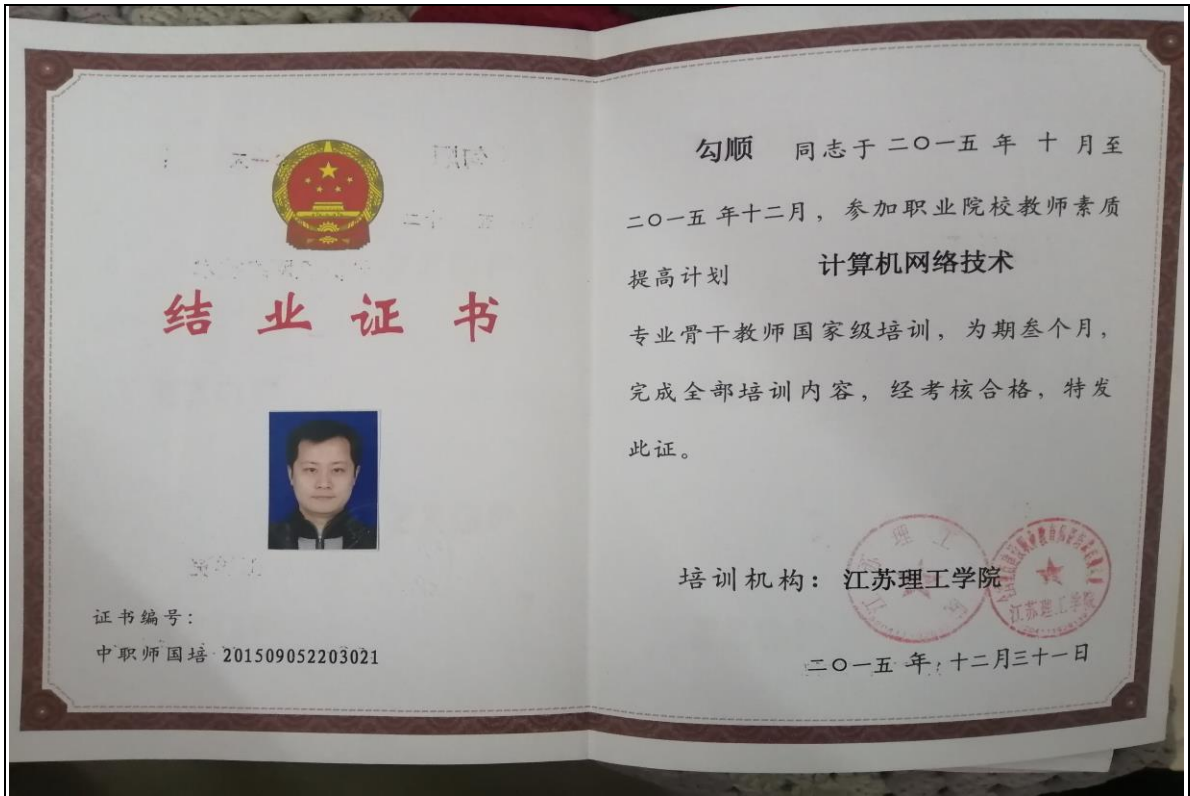 结业证书
证书编号：
中职师国培 201509052203021
勾顺 同志于二〇一五年 十 月至
二〇一五年十二月，参加职业院校教师素质
提高计划 计算机网络技术
专业骨干教师国家级培训，为期叁个月，
完成全部培训内容，经考核合格，特发
此证。
培训机构：江苏理工学院
江苏理工学院
二〇一五年十二月三十一日